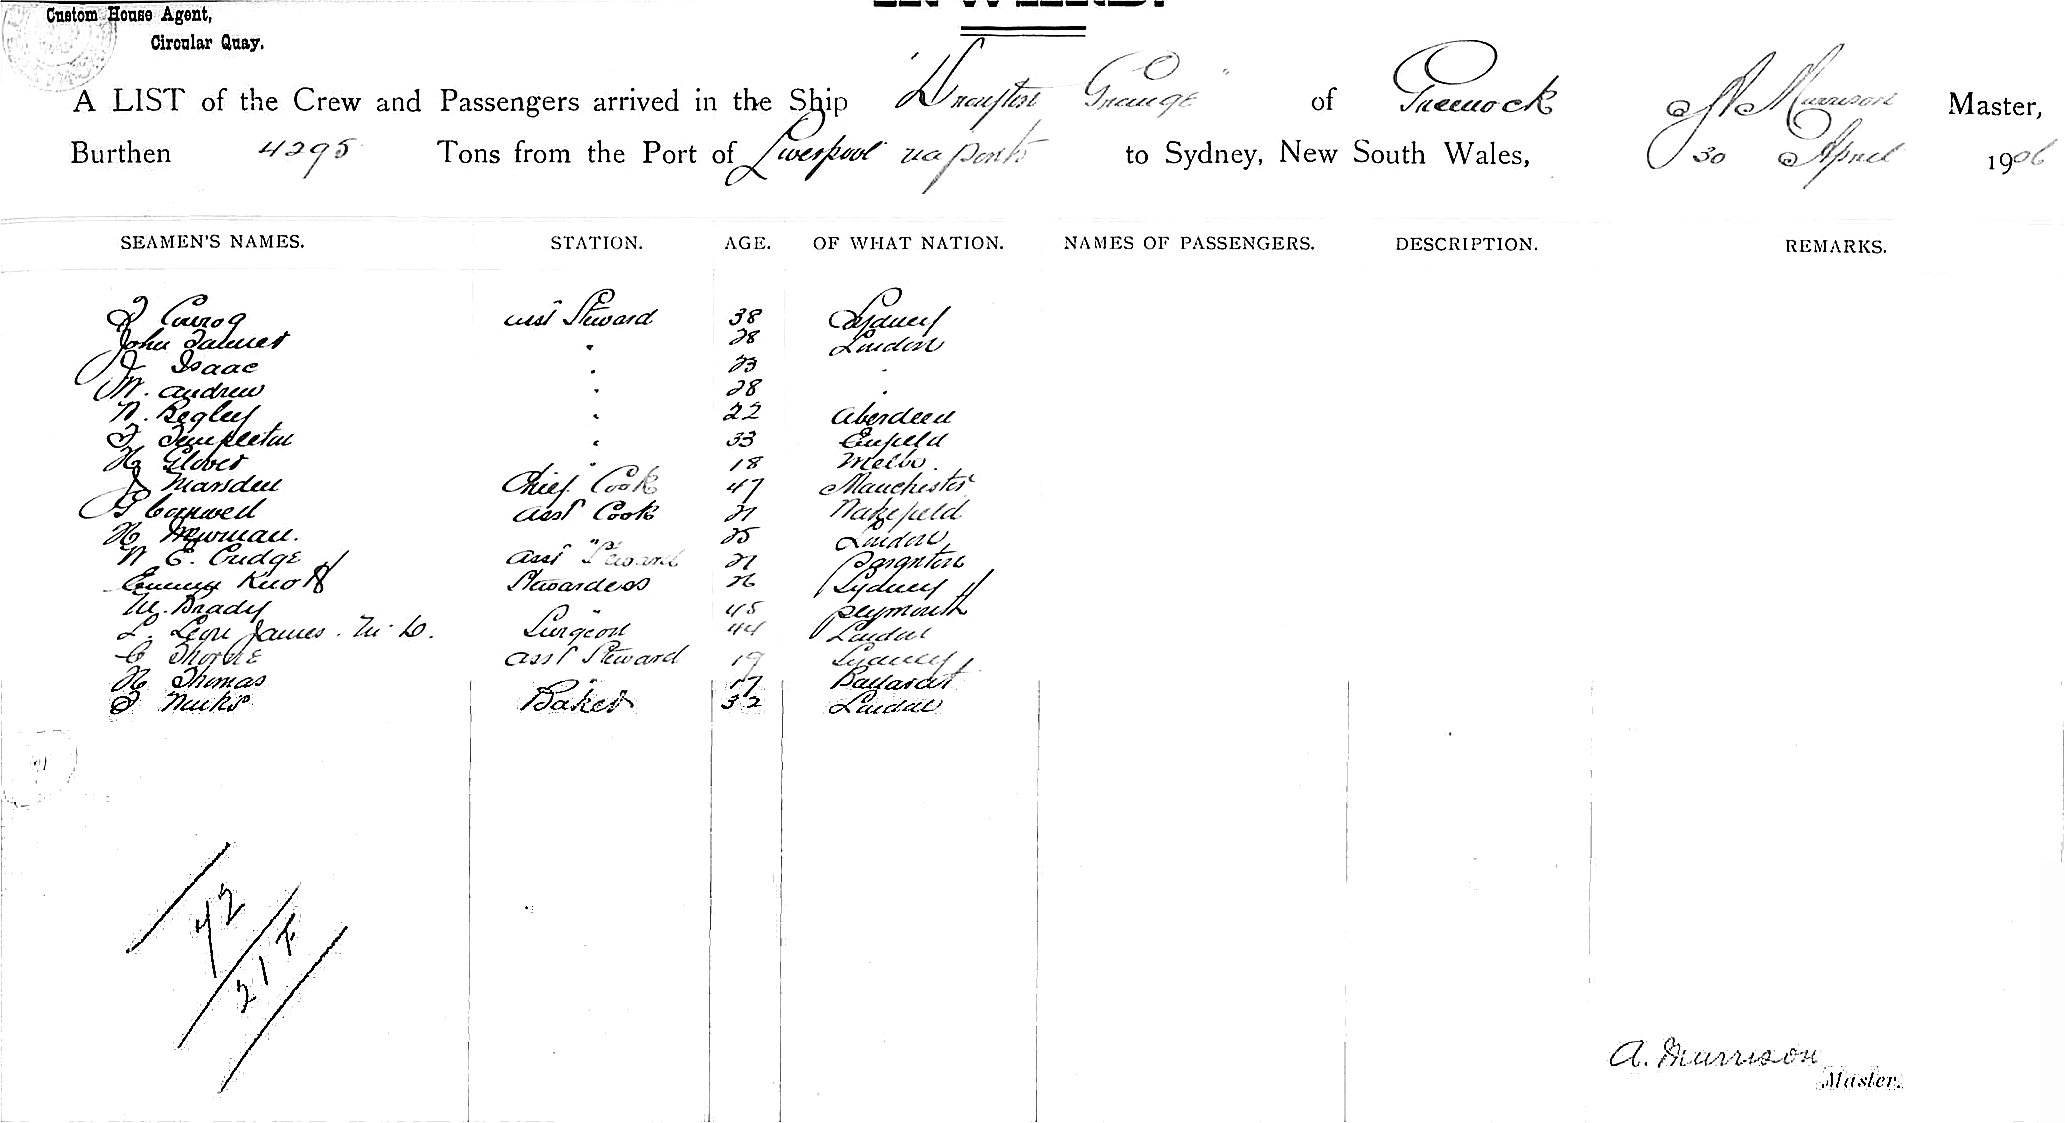 Custom House Agent,
Circular Quay.
A LIST of the Crew and Passengers arrived in the Ship "Drayton Grange" of Greenock A Murrison Master,
Burthen 4295 Tons from the Port of Liverpool via ports to Sydney, New South Wales, 30 April 1906
SEAMEN'S NAMES. STATION. AGE. OF WHAT NATION. NAMES OF PASSENGERS. DESCRIPTION. REMARKS.
asst Steward 38 Sydney
John " 28 London
J Isaac " 23 "
M. Andrew " 28 "
N. Begley " 22 Aberdeen
T Templeton " 33 Enfield
H Glover " 18 Melbo.
J Marsden Chief Cook 47 Manchester
G Cornwell asst Cook 21 Wakefield
H Newman. " 25 London
W E. Cudge asst Steward 21 Paignton
Emma Knott Stewardess 26 Sydney
M. Brady " 45 Plymouth
L. Leon James. M.D. Surgeon 44 London
C Thorne asst Steward 19 Sydney
H Thomas " 17 Ballarat
Baker 32 London
42
21 F
A. Murrison
Master.